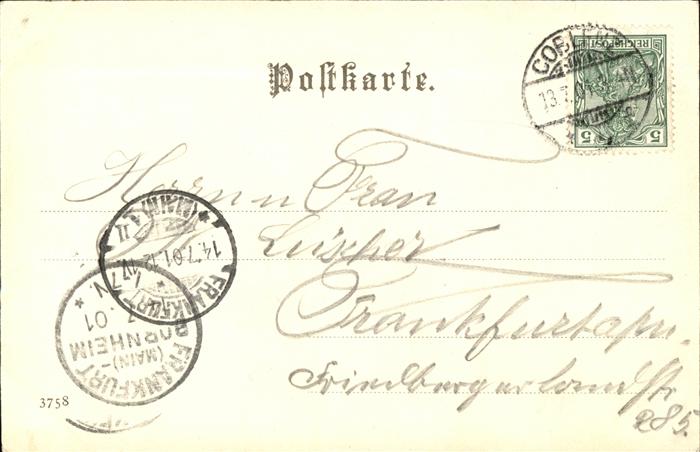 Postkarte.
COBLENZ
13.7.01
REICHSPOST
5 5
Herrn u Frau
Lüscher
Frankfurt a/m.
Friedbergerlandstr
285.
FRANKFURT (MAIN) 1
14.7.01.12-1V.
FRANKFURT
(MAIN)-
BORNHEIM
7.01
7N
3758